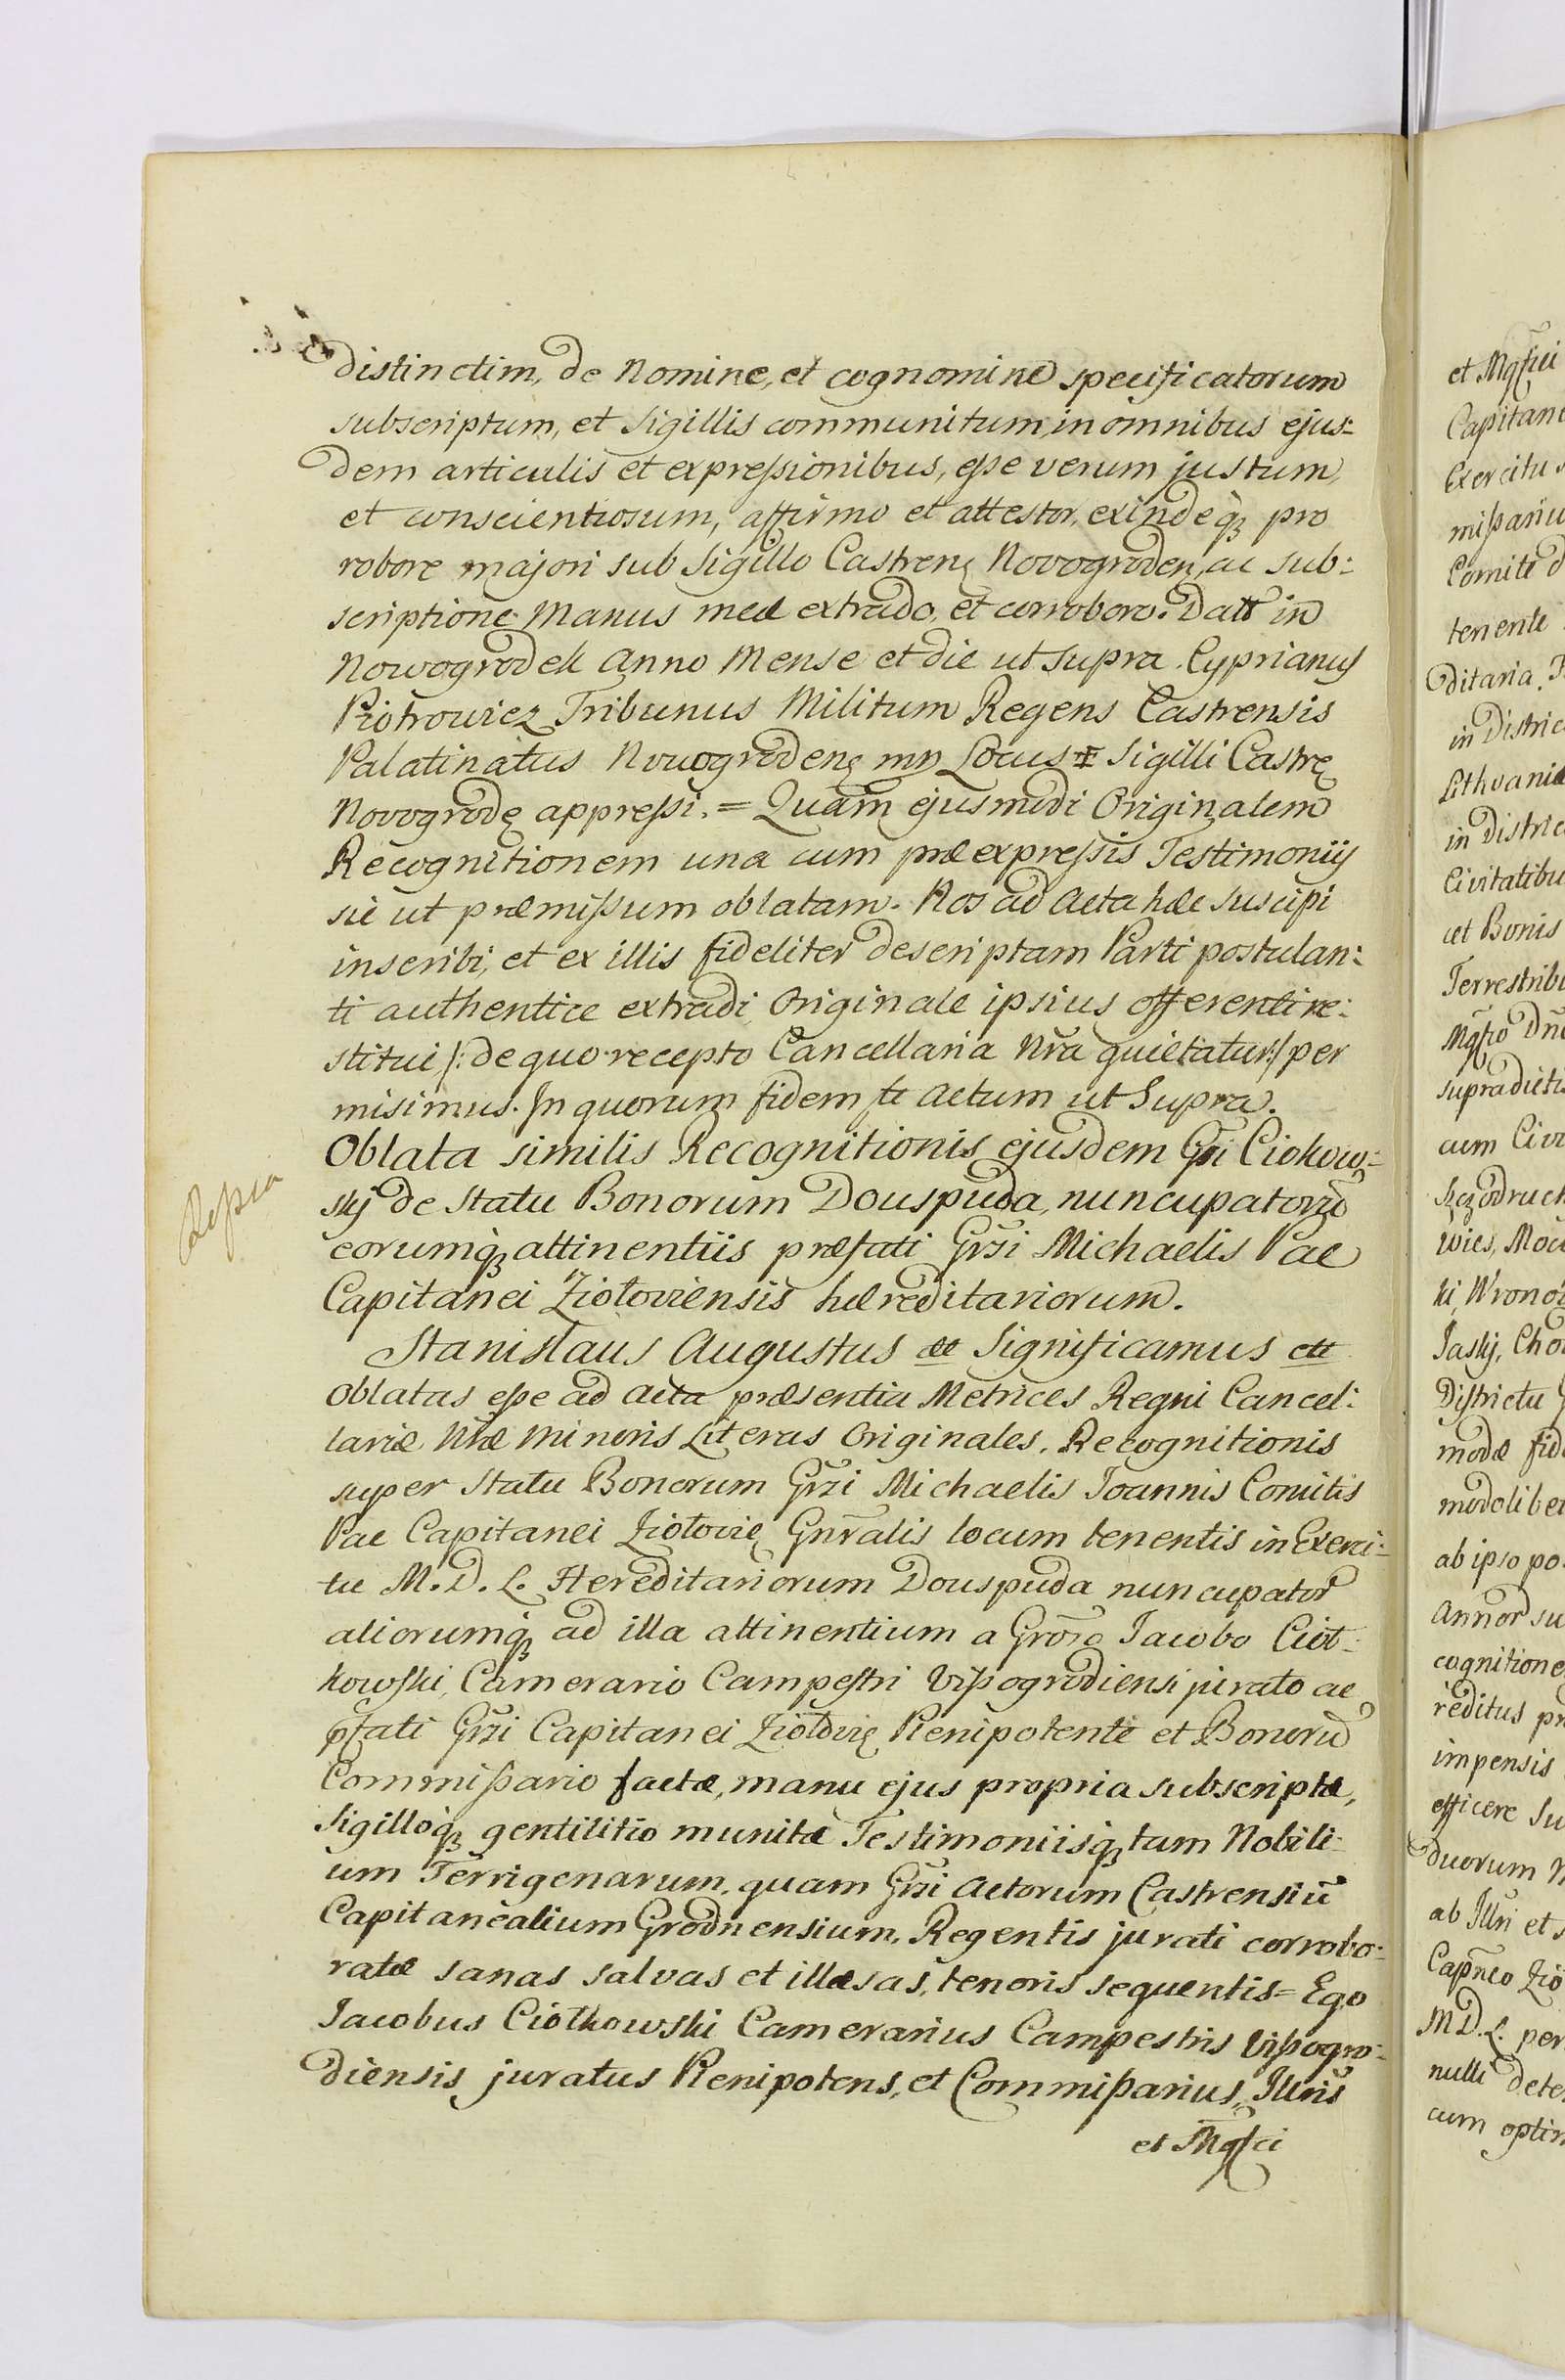 distinctim, de Nomine, et cognomine specificatorum
subscriptum, et Sigillis communitum, in omnibus ejus:
dem articulis et expreſsionibus, eſse verum justum,
et conscientiosum, affirmo et attestor, exindeq; pro
robore majori sub Sigillo Castren: Novogroden, ac sub:
scriptione Manus meæ extrado, et corroboro. Datt in
Nowogrodek Anno Mense et die ut supra. Cyprianus
Piotrowicz Tribunus Militum Regens Castrensis
Palatinatus Novogroden: mp Locus Sigilli Castr:
Novogrod: appreſsi. = Quam ejusmodi Originalem
Recognitionem una cum præexpreſsis Testimonijs
sic ut præmiſsum oblatam. Nos ad Acta hæc suscipi
inscribi, et ex illis fideliter descriptam Parti postulan:
ti authentice extradi, Originale ipsius offerenti re:
stitui /: de quo recepto Cancellaria Nra quietatur :/ per
misimus. In quorum fidem &c Actum ut Supra.
Oblata similis Recognitionis ejusdem Gsi Ciołkow:
skj de statu Bonorum Douspuda, nuncupatorū
eorumq; attinentiis præfati Grsi Michaelis Pac
Capitanei Ziołoviensis hæreditariorum.
Stanislaus Augustus &c Significamus &c
Oblatas eſse ad Acta præsentia Metrices Regni Cancel:
lariæ Nræ Minoris Literas Originales. Recognitionis
super statu Bonorum Grsi Michaelis Joannis Comitis
Pac Capitanei Ziołovie: Gnralis locum tenentis in Exerci:
tu M. D. L. Hereditariorum Douspuda nuncupator
aliorumq; ad illa attinentium a Groso Jacobo Cioł:
kowſki, Camerario Campeſtri Viſsogrodiensi jurato ac
pſati Grsi Capitanei Ziołovie: Plenipotente et Bonorū
Commiſsario factæ, manu ejus propria subscriptæ,
Sigilloq; gentilitio munitæ Testimoniisq; tam Nobili:
um Terrigenarum, quam Grsi Actorum Castrensiū
Capitanealium Grodnensium, Regentis jurati corrobo:
ratæ sanas salvas et illæsas, tenoris sequentis = Ego
Jacobus Ciołkowski Camerarius Campestris Viſsogro:
diensis juratus Plenipotens, et Commiſsarius, Illris
et Mgſci